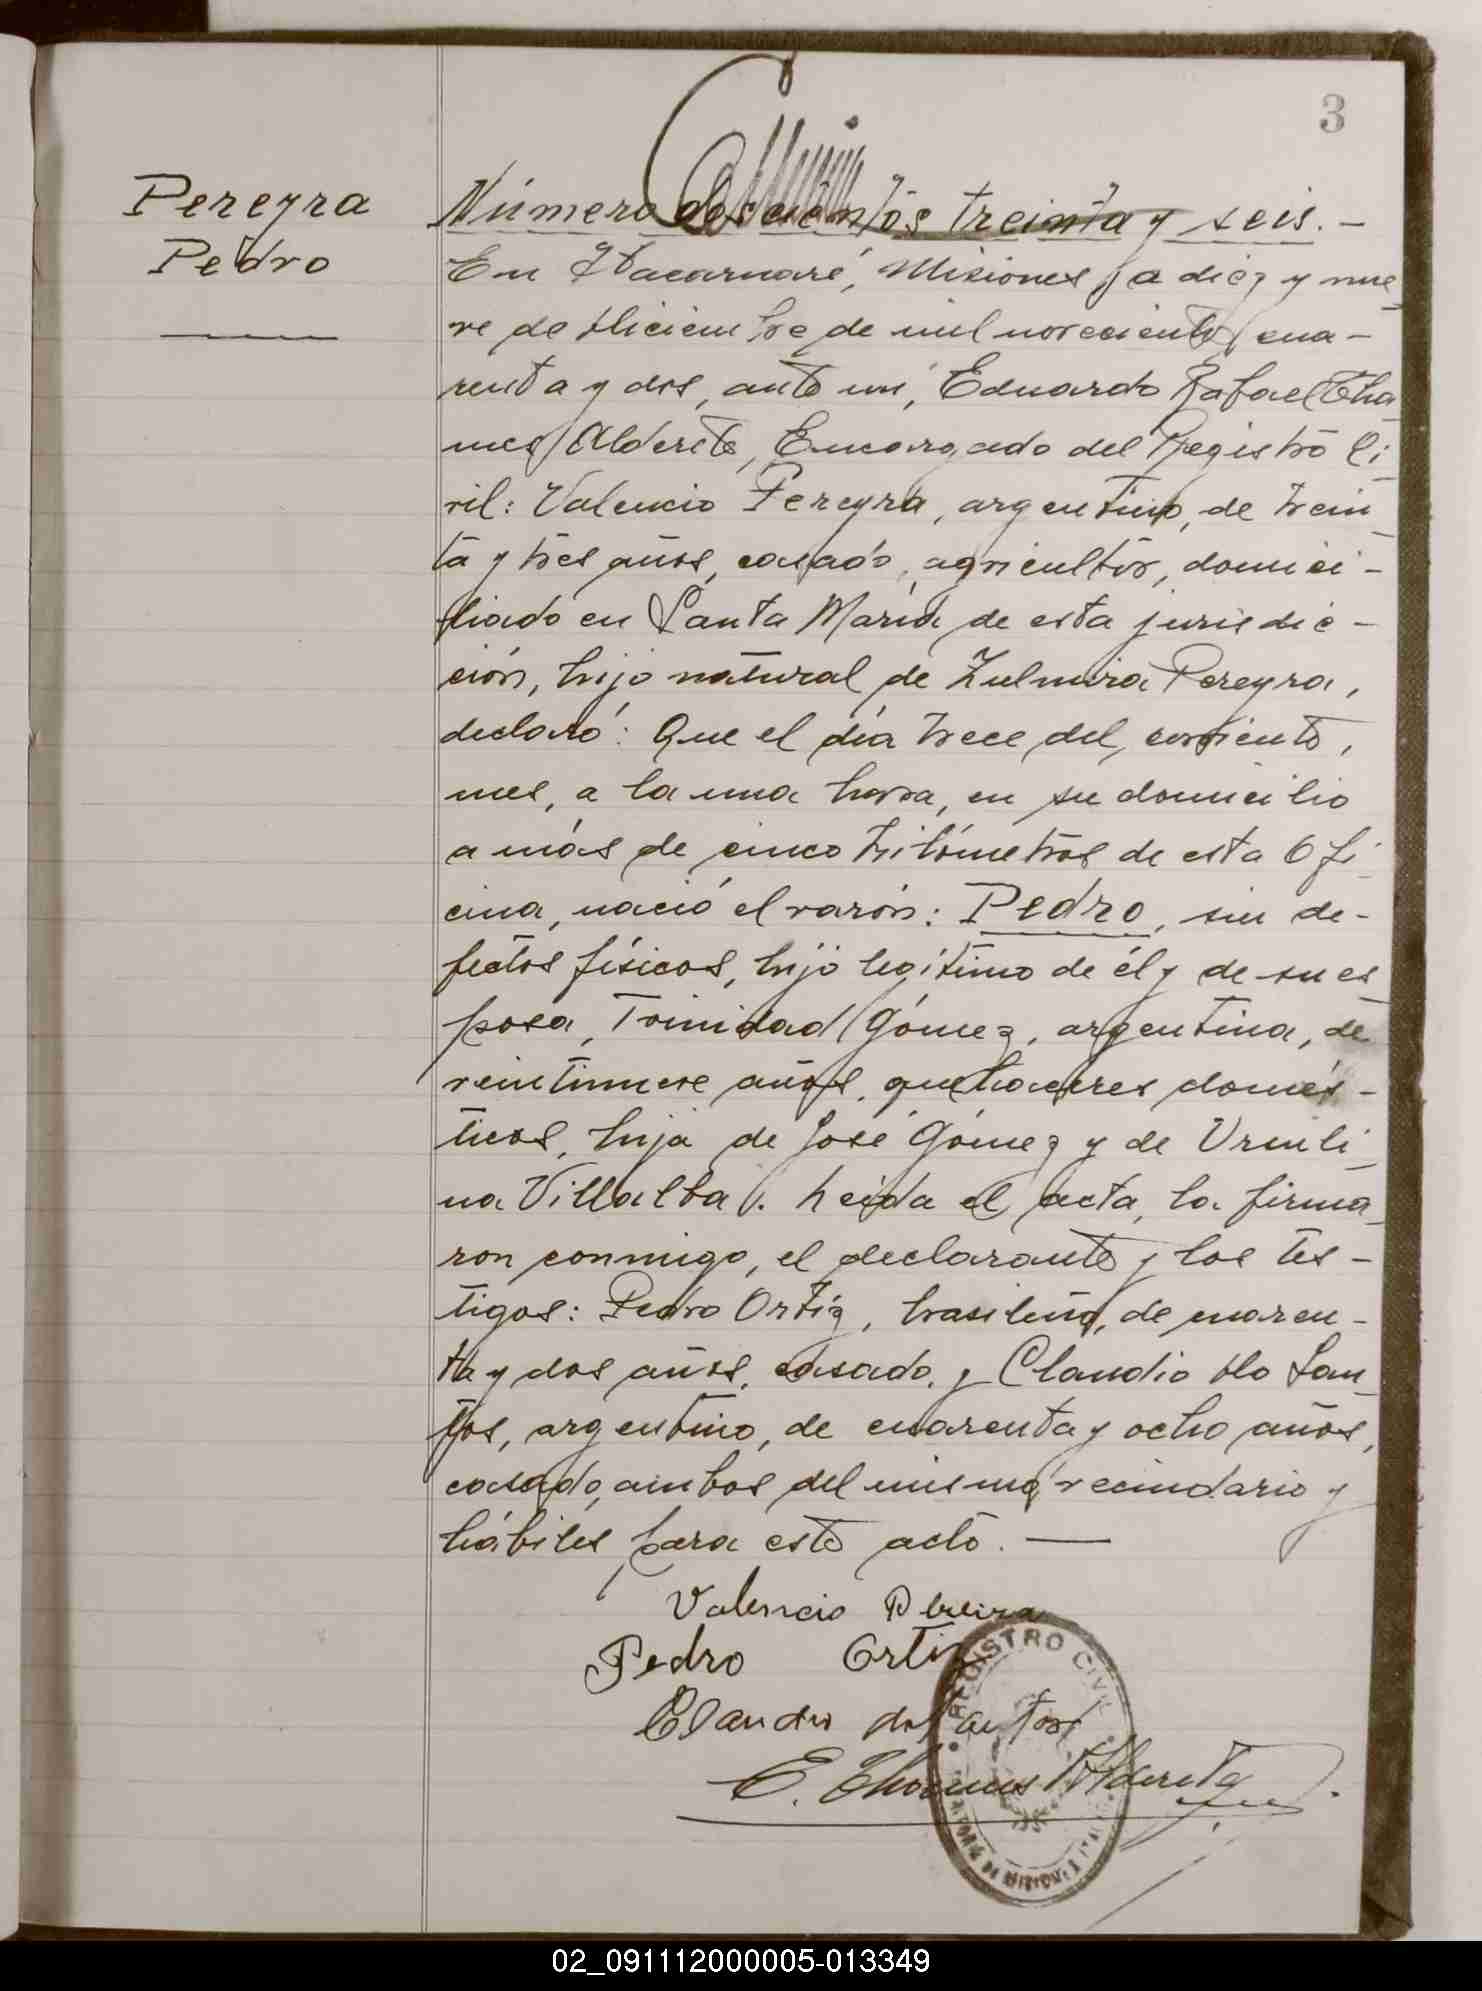 3
Pereyra
Pedro
Número doscientos treinta y seis. –
En Itacaruaré, Misiones, a diez y nue
ve de Diciembre de mil novecientos cua–
renta y dos, ante mí, Eduardo Rafael Tha
mes Alderete, Encargado del Registro Ci
vil: Valencio Pereyra, argentino, de trein
ta y tres años, casado, agricultor, domici–
liado en Santa María de esta jurisdic–
ción, hijo natural de Zulmira Pereyra,
declaró: Que el día trece del corriente,
mes, a la una hora, en su domicilio
a más de cinco kilómetros de esta Ofi
cina, nació el varón: Pedro, sin de–
fectos físicos, hijo legítimo de él y de su es
posa, Trinidad Gómez, argentina, de
veintinueve años, quehaceres domés–
ticos, hija de José Gómez y de Urmili
na Villalba. Leida el acta, la firma
ron conmigo, el declarante y los tes–
tigos: Pedro Ortiz, brasileño, de cuaren–
ta y dos años, casado, y Claudio Do San
tos, argentino, de cuarenta y ocho años,
casado, ambos del mismo vecindario y
hábiles para este acto. —
Valencio Pereira
Pedro Ortiz
Claudio dos Santos
E. Thames Alderete
REGISTRO CIVIL
02_091112000005-013349